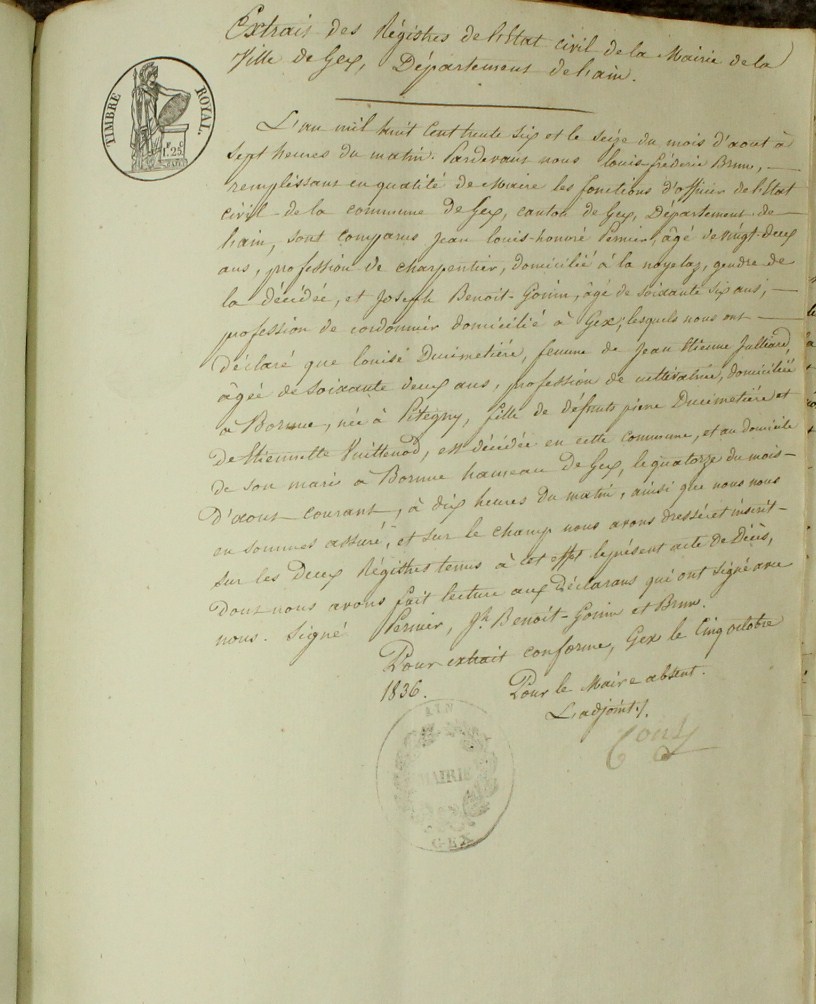 Extrait des Régistres de l'Etat civil de la Mairie de la
Ville de Gex, Département de l'ain.
TIMBRE ROYAL.
1F. 25C
L'an mil huit cent trente six et le seize du mois d'aout à
sept heures du matin. Pardevant nous louis frédéric Brun,
remplissant en qualité de Maire les fonctions d'officier de l'Etat
civil de la commune de Gex, canton de Gex, Département de
l'ain, sont comparus Jean louis-honoré Pernier, âgé de vingt-deux
ans, profession de charpentier, domicilié à la noyelaz, gendre de
la décédée, et Joseph Benoit-Gonin, âgé de soixante six ans,
profession de cordonnier domicilié à Gex, lesquels nous ont
déclaré que louise Ducimetière, femme de Jean Etienne Julliard,
âgée de soixante deux ans, profession de cultivatrice, domiciliée
à née à Pitegny, fille de défunts pierre Ducimetière et
de Etiennette Vuittenod, est décédée en cette commune, et au domicile
de son mari à hameau de Gex, le quatorze du mois
d'aout courant, à dix heures du matin, ainsi que nous nous
en sommes assuré, et sur le champ nous avons dressé et inscrit
sur les deux Régistres tenus à cet effet le présent acte de Décès,
dont nous avons fait lecture aux Déclarans qui ont signé avec
nous. Signé Pernier, Jh. Benoit-Gonin et Brun.
Pour extrait conforme, Gex le cinq octobre
1836.
Pour le Maire absent.
L'adjoint.
AIN
MAIRIE
GEX